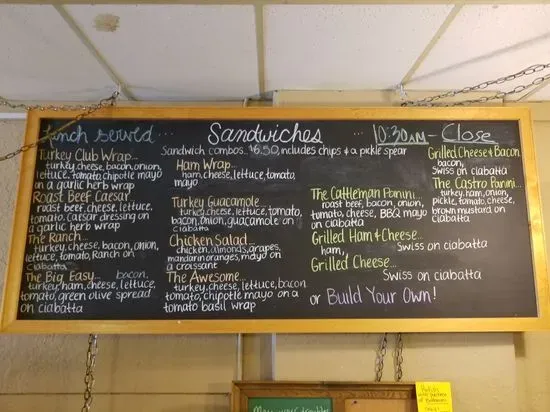 Lunch served...
Sandwiches
10:30AM - Close
Sandwich combos... $6.50, includes chips & a pickle spear
Turkey Club Wrap...
turkey, cheese, bacon, onion,
lettuce, tomato, chipotle mayo
on a garlic herb wrap
Roast Beef Caesar
roast beef, cheese, lettuce,
tomato, Caesar dressing on
a garlic herb wrap
The Ranch...
turkey, cheese, bacon, onion,
lettuce, tomato, Ranch on
ciabatta
The Big Easy... bacon,
turkey, ham, cheese, lettuce,
tomato, green olive spread
on ciabatta
Ham Wrap...
ham, cheese, lettuce, tomato,
mayo
Turkey Guacamole
turkey, cheese, lettuce, tomato,
bacon, onion, guacamole on
ciabatta
Chicken Salad...
chicken, almonds, grapes,
mandarin oranges, mayo on
a croissant
The Awesome...
turkey, cheese, lettuce, bacon
tomato, chipotle mayo on a
tomato basil wrap
The Cattleman Panini...
roast beef, bacon, onion,
tomato, cheese, BBQ mayo
on ciabatta
Grilled Ham & Cheese...
ham, Swiss on ciabatta
Grilled Cheese...
Swiss on ciabatta
or Build Your Own!
Grilled Cheese & Bacon
bacon,
Swiss on ciabatta
The Castro Panini...
turkey, ham, onion,
pickle, tomato, cheese,
brown mustard on
ciabatta